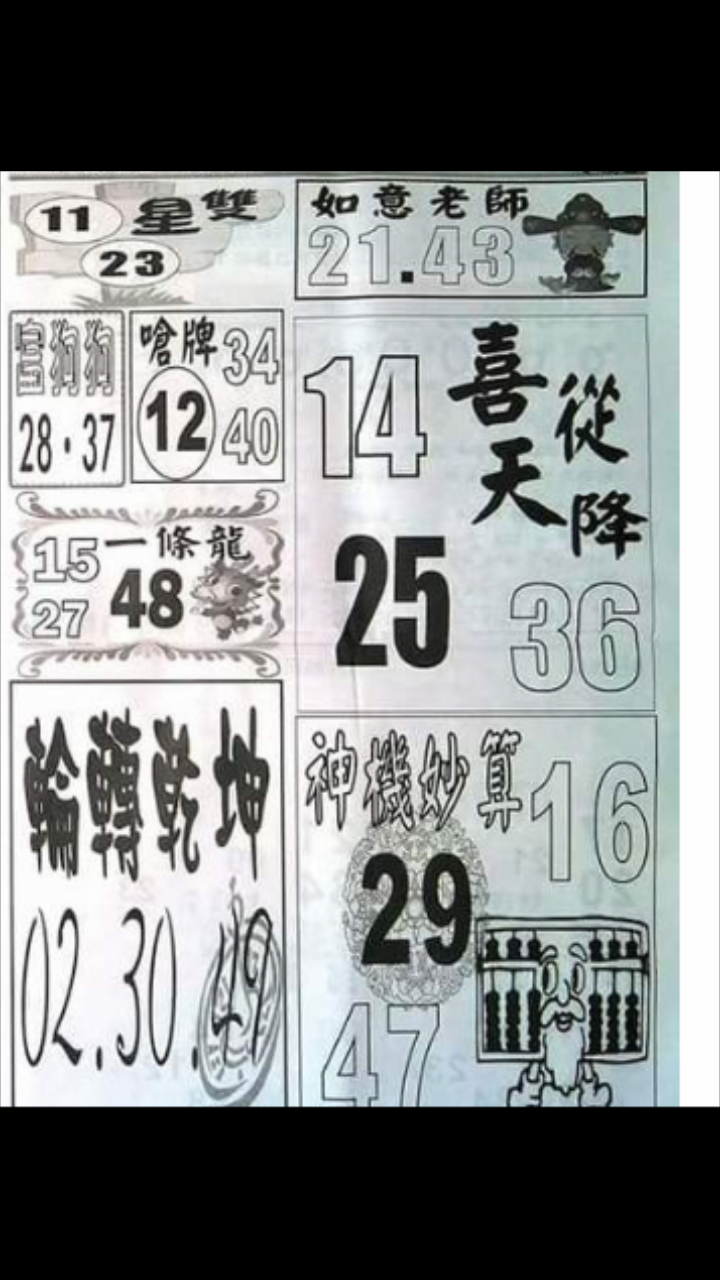 11 星雙
23
如意老師
21.43
富狗狗
28·37
嗆牌
34
12
40
14
喜從天降
25
36
一條龍
15
48
27
輪轉乾坤
02.30.49
神機妙算
16
29
47